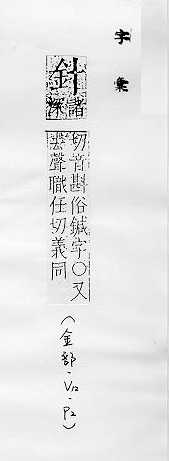 字彙
針
諸深
切音斟俗鍼字○又
去聲職任切義同
(金部-V12-P2)